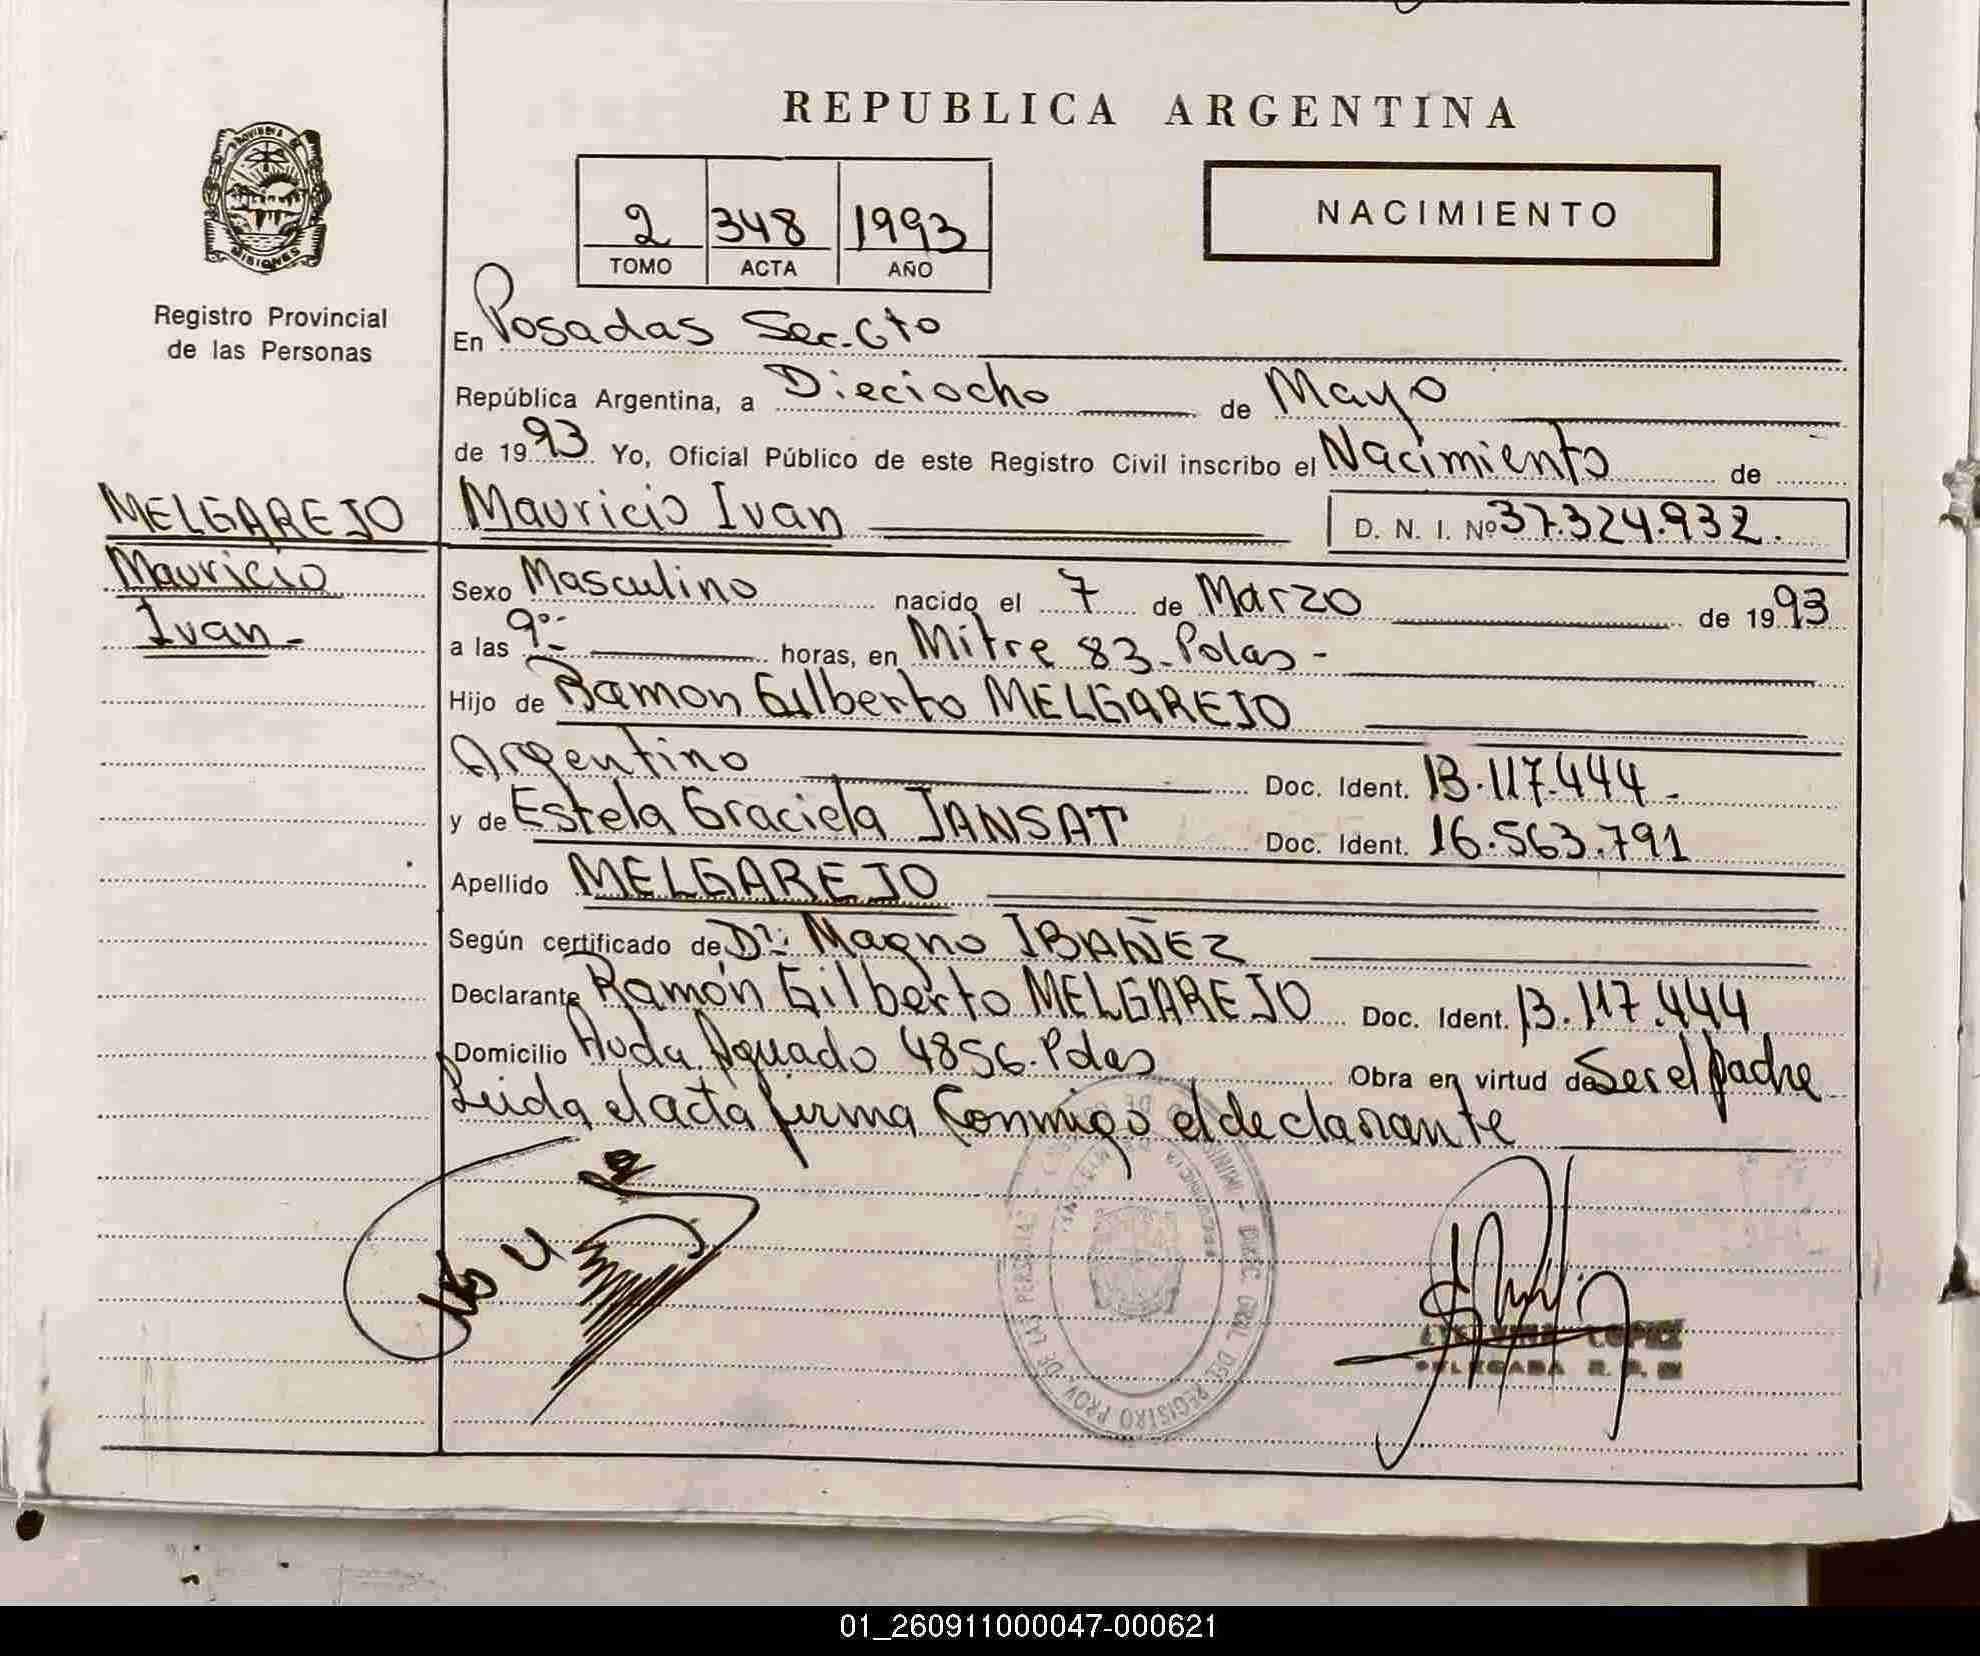 REPUBLICA ARGENTINA
PROVINCIA DE
MISIONES
2 348 1993
TOMO ACTA AÑO
NACIMIENTO
Registro Provincial
de las Personas
En Posadas Sec. 6to
República Argentina, a Dieciocho de Mayo
de 1993 Yo, Oficial Público de este Registro Civil inscribo el Nacimiento de
MELGAREJO
Mauricio
Ivan-
Mauricio Ivan D. N. I. Nº 37.324.932.
Sexo Masculino nacido el 7 de Marzo de 1993
a las 9°- horas, en Mitre 83-Pdas-
Hijo de Ramon Gilberto MELGAREJO
Argentino Doc. Ident. 13.117.444-
y de Estela Graciela JANSAT Doc. Ident. 16.563.791
Apellido MELGAREJO
Según certificado de Dr: Magno IBAÑEZ
Declarante Ramón Gilberto MELGAREJO Doc. Ident. 13.117.444
Domicilio Avda Aguado 4856-Pdas Obra en virtud de Ser el padre
Leida el acta firma Conmigo el declarante
DIREC. GRAL. DEL REGISTRO PROV. DE LAS PERSONAS
LOPEZ
DELEGADA R. P.
01_260911000047-000621